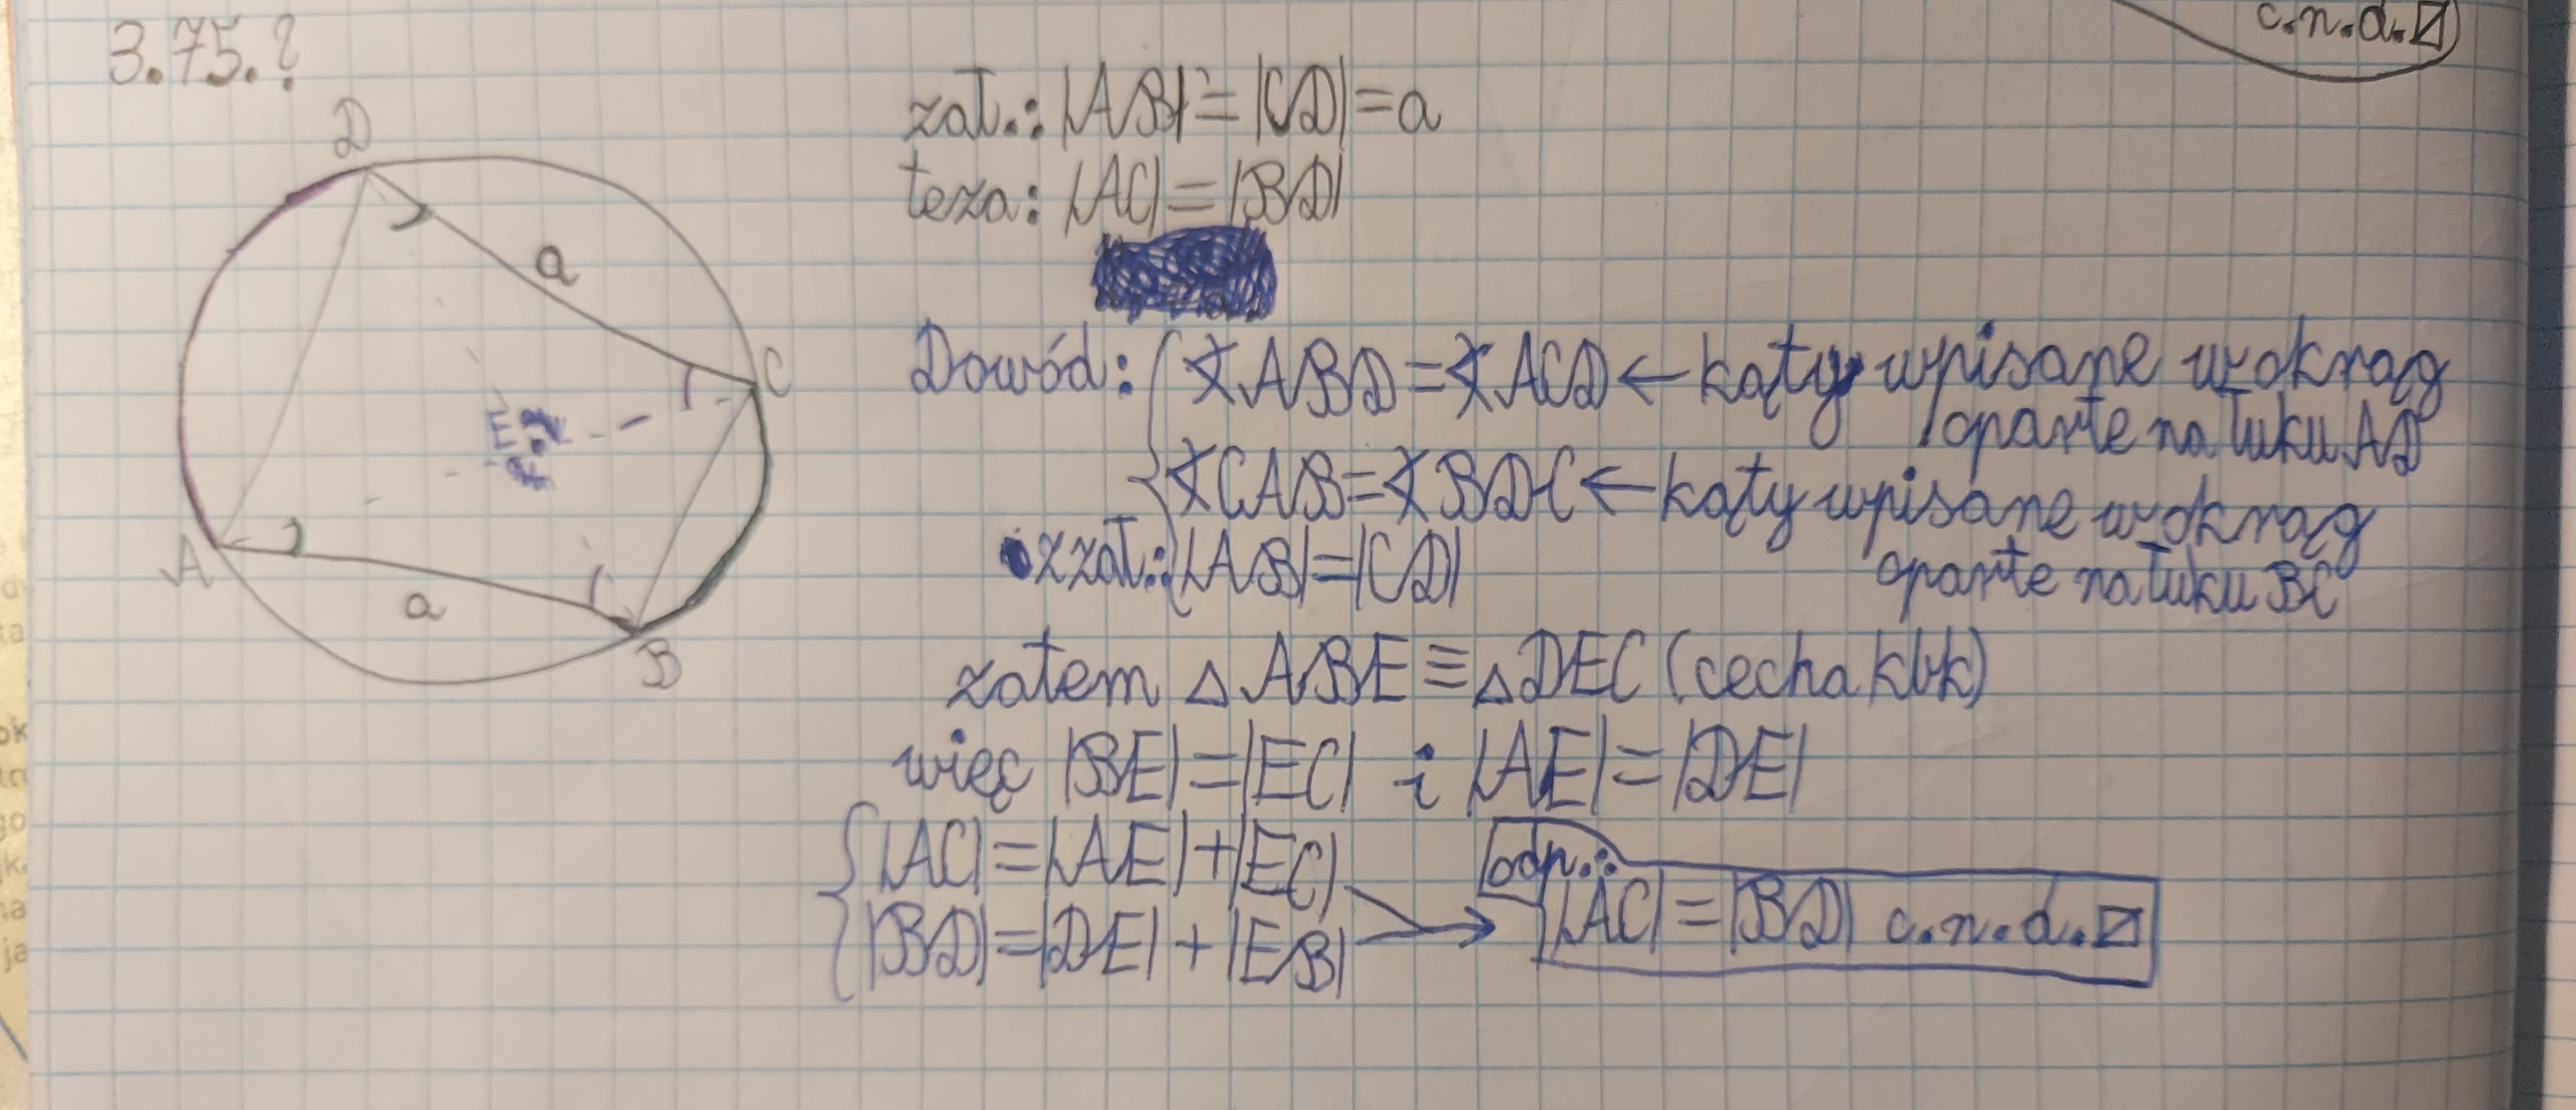 c.n.d.
3.75.?
zał.: |AB| = |CD| = a
teza: |AC| = |BD|
D
a
C
E
A
a
B
Dowód: ∢ABD = ∢ACD ← kąty wpisane w okrąg
oparte na łuku AD
∢CAB = ∢BDC ← kąty wpisane w okrąg
z zał.: |AB| = |CD|
oparte na łuku BC
zatem △ABE ≡ △DEC (cecha kbk)
więc |BE| = |EC| i |AE| = |DE|
|AC| = |AE| + |EC|
odp.:
|BD| = |DE| + |EB|
|AC| = |BD| c.n.d.